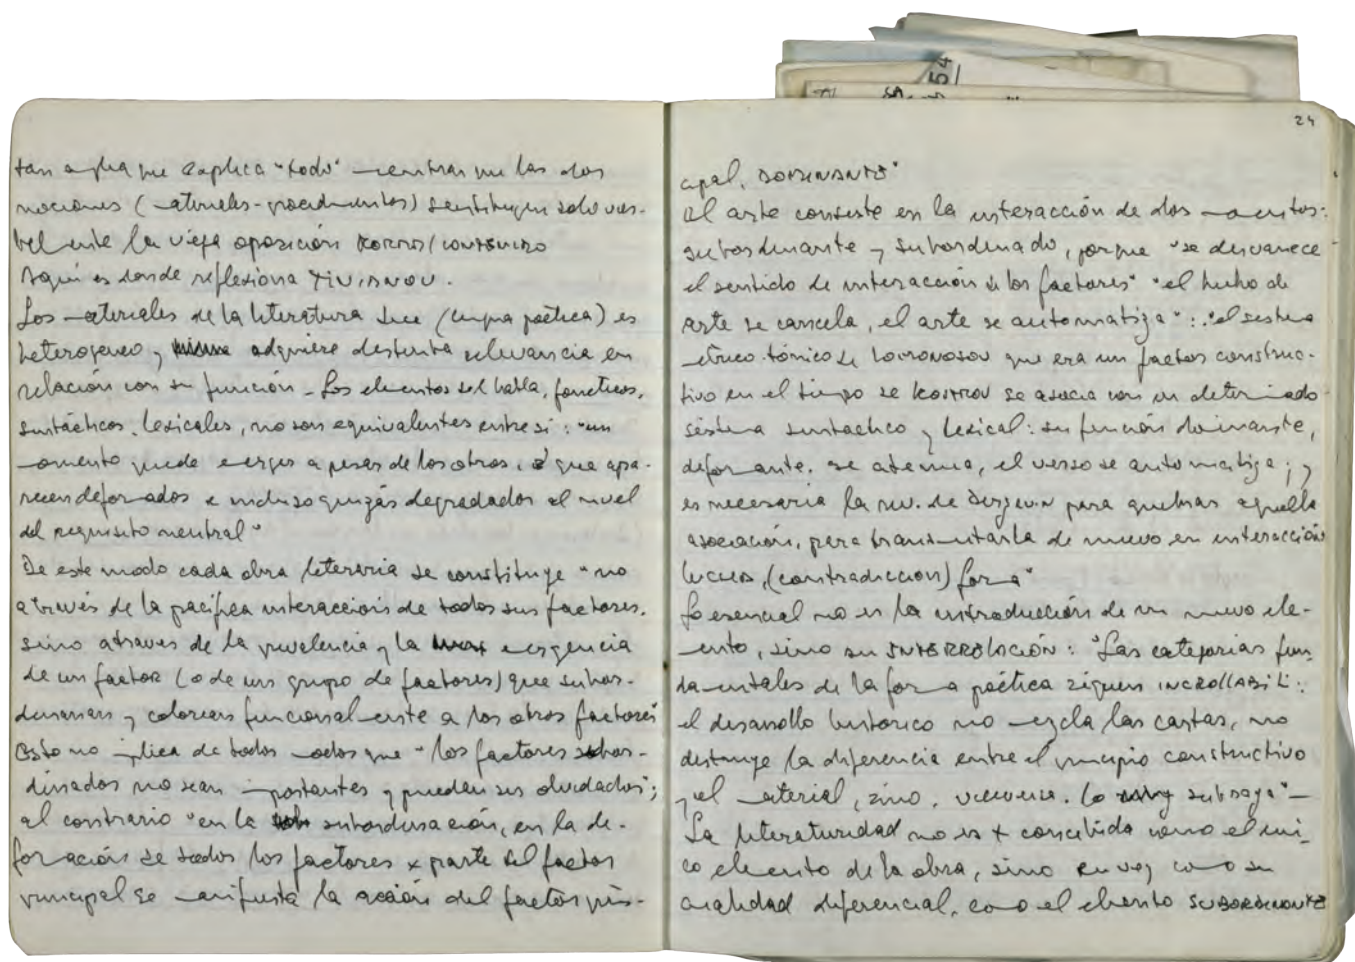 54
24
tan amplia que explica "todo" mientras que las dos
nociones (materiales-procedimientos) sustituyen solo ver-
balmente la vieja oposición FORMA/CONTENIDO
Aquí es donde reflexiona TINIANOV.
Los materiales de la literatura dice (lengua poética) es
heterogeneo y adquiere distinta relevancia en
relación con su función - Los elementos del habla, fonéticos,
sintácticos, lexicales, no son equivalentes entre si: "un
momento puede emerger a pesar de los otros, que apa-
recen deformados e incluso quizás degradados al nivel
del requisito neutral"
De este modo cada obra literaria se constituye "no
a través de la pacífica interacción de todos sus factores,
sino a traves de la prevalencia y la emergencia
de un factor (o de un grupo de factores) que subor-
dinan y colorean funcionalmente a los otros factores"
esto no implica de todos modos que "los factores subor-
dinados no sean importantes y pueden ser olvidados";
al contrario "en la subordinación, en la de-
formación de todos los factores x parte del factor
principal se manifiesta la acción del factor prin-
cipal, DOMINANTE"
El arte consiste en la interacción de dos momentos:
subordinante y subordinado, porque "se desvanece
el sentido de interacción de los factores" "el hecho de
arte se cancela, el arte se automatiza": "el sistema
métrico-tónico de LOMONOSOV que era un factor construc-
tivo en el tiempo de KOSTROV se asocia con un determinado
sistema sintactico y lexical: su función dominante,
deformante, se atenua, el verso se automatiza; y
es necesaria la rev. de DERJAVIN para quebrar aquella
asociación, para transmutarla de nuevo en interacción
lucha, (contradiccion) forma"
Lo esencial no es la introducción de un nuevo ele-
mento, sino su INTERRELACIÓN: "Las categorias fun-
damentales de la forma poética siguen INCROLLABILI:
el desarrollo historico no mezcla las cartas, no
destruye la diferencia entre el principio constructivo
y el material, sino, viceversa, lo subraya" -
La literaturidad no es + concebida como el úni-
co elemento de la obra, sino en vez como su
cualidad diferencial, como el elemento SUBORDINANTE